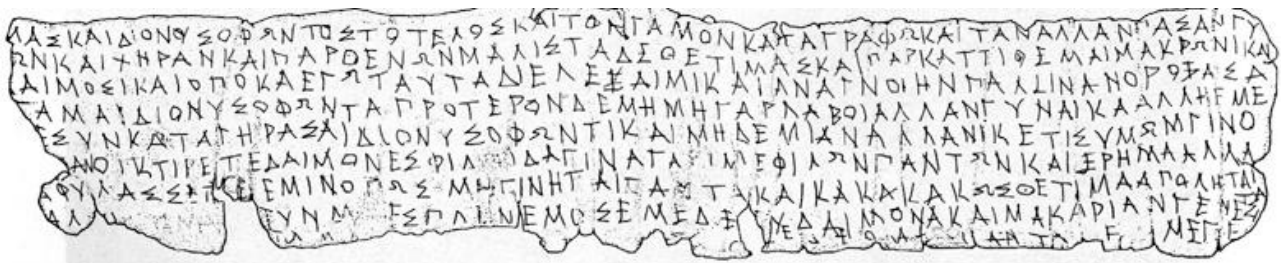 ΜΑΣΚΑΙΔΙΟΝΥΣΟΦΩΝΤΟΣΤΟΤΕΛΟΣΚΑΙΤΟΝΓΑΜΟΝΚΑΤΑΓΡΑΦΩΚΑΙΤΑΝΑΛΛΑΝΠΑΣΑΝΓΥ
ΩΝΚΑΙΧΗΡΑΝΚΑΙΠΑΡΘΕΝΩΝΜΑΛΙΣΤΑΔΕΘΕΤΙΜΑΣΚΑΙΠΑΡΚΑΤΤΙΘΕΜΑΙΜΑΚΡΩΝΙΚΑΙ
ΔΑΙΜΟΣΙΚΑΙΟΠΟΚΑΕΓΩΤΑΥΤΑΔΙΕΛΕΞΑΙΜΙΚΑΙΑΝΑΓΝΟΙΗΝΠΑΛΛΙΝΑΝΟΡΟΞΑΣΑ
ΓΑΜΑΙΔΙΟΝΥΣΟΦΩΝΤΑΠΡΟΤΕΡΟΝΔΕΜΗΜΗΓΑΡΛΑΒΟΙΑΛΛΑΝΓΥΝΑΙΚΑΑΛΛΗΕΜΕ
ΕΣΥΝΚΑΤΑΓΗΡΑΣΑΙΔΙΟΝΥΣΟΦΩΝΤΙΚΑΙΜΗΔΕΜΙΑΝΑΛΛΑΝΙΚΕΤΙΣΥΜΩΜΓΙΝΟ
ΑΝΟΙΚΤΙΡΕΤΕΔΑΙΜΟΝΕΣΦΙΛΙΔΑΓΙΝΑΓΑΡΙΜΕΦΙΛΩΝΠΑΝΤΩΝΚΑΙΕΡΗΜΑΑΛΛΑ
ΑΦΥΛΑΣΣΕΤΕΕΜΙΝΟΠΩΣΜΗΓΙΝΗΤΑΙΤΑΥΤΑΚΑΙΚΑΚΑΚΑΚΩΣΘΕΤΙΜΑΑΠΟΛΗΤΑΙ
ΑΛ ΥΝΜ ΕΣΠΛΙΝΕΜΟΣΕΜΕΔΕΥΔΑΙΜΟΝΑΚΑΙΜΑΚΑΡΙΑΝΓΕΝΕΣ